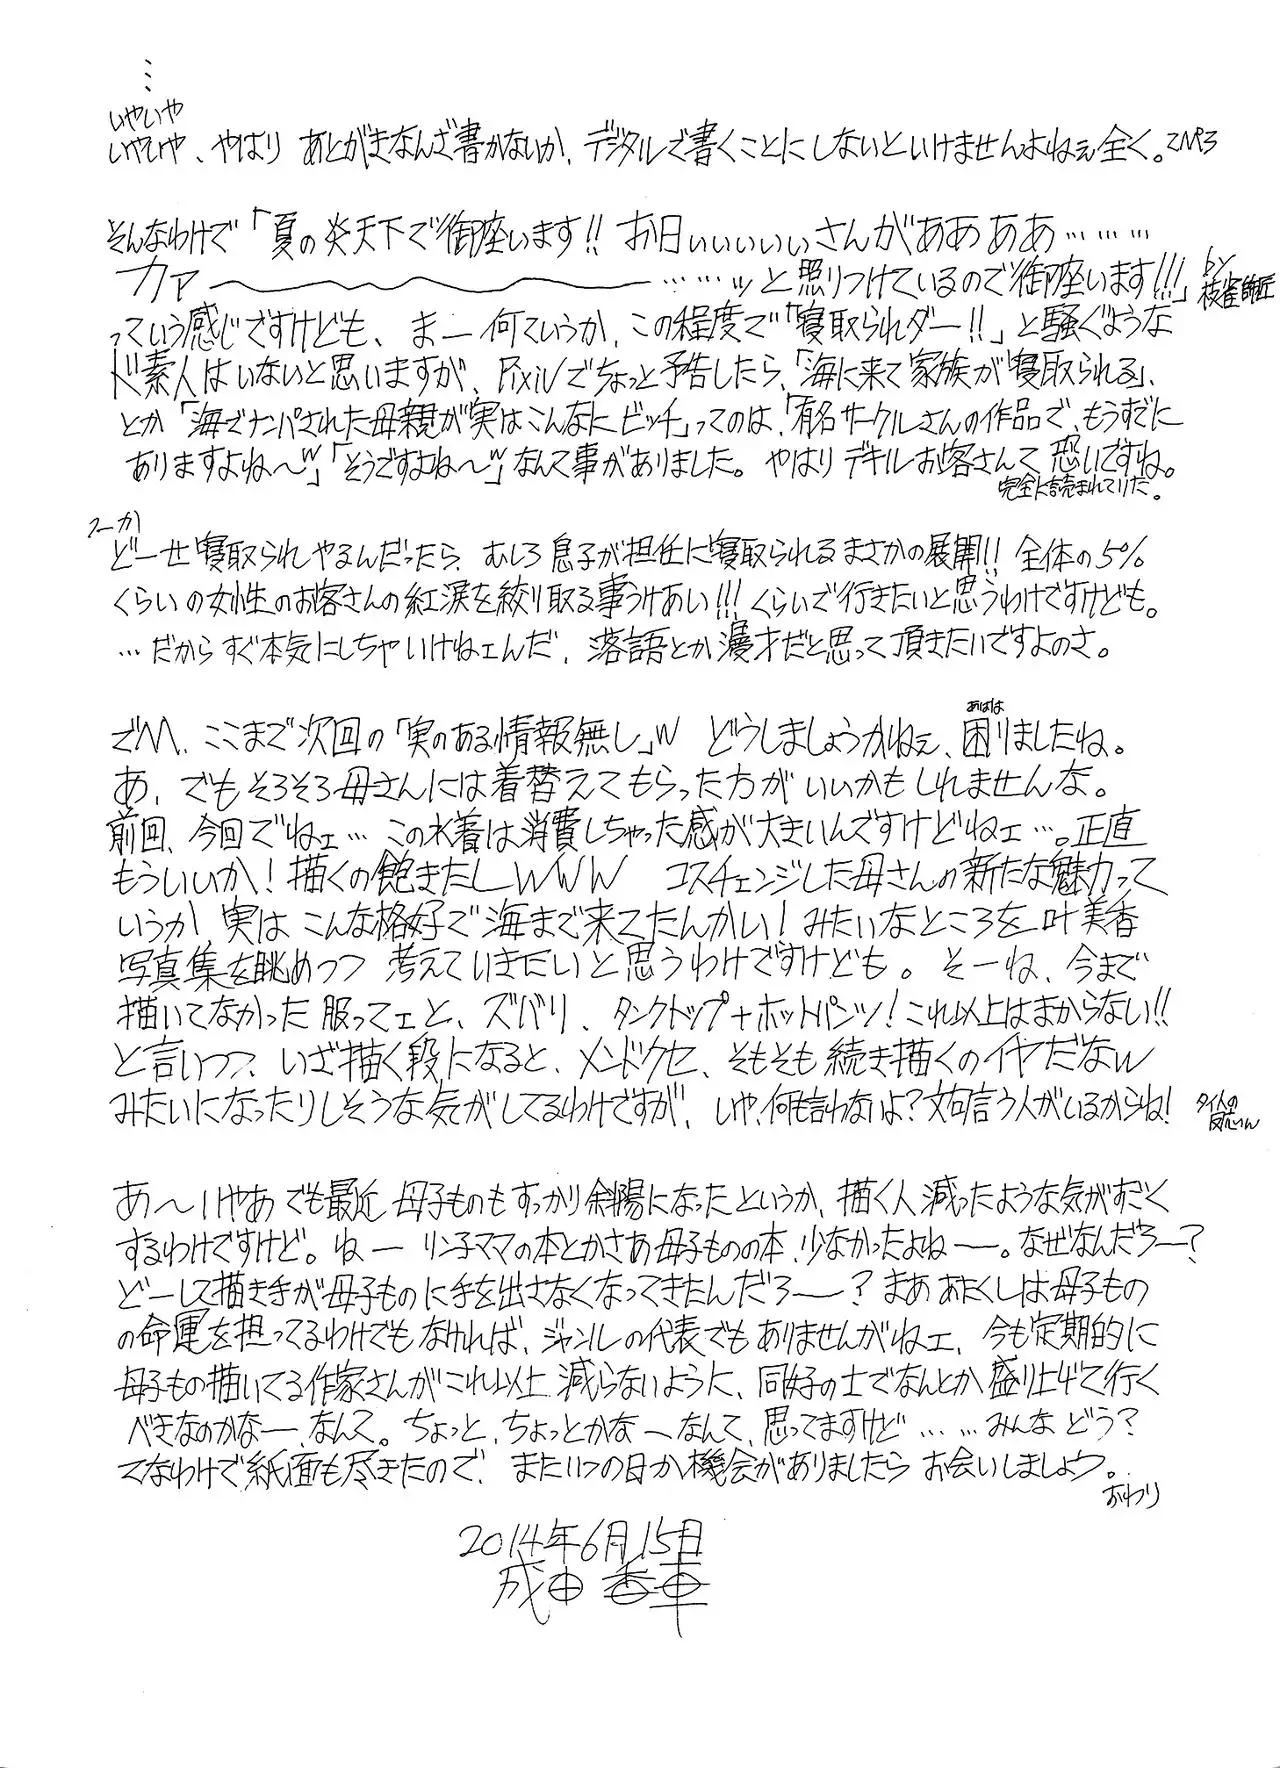 ……
いやいや
いやいや、やはり あとがきなんざ書かないか、デジタルで書くことにしないといけませんよねぇ全く。2人P3
そんなわけで「夏の炎天下で御座います!! お日ぃぃぃぃぃさんがああああ………
カァ～～～～～……ッと照りつけているので御座います!!!」by枝雀師匠
っていう感じですけども、まー何ていうか、この程度で「寝取られダー!!」と騒ぐような
ド素人はいないと思いますが、Pixivでちょっと予告したら、「海に来て家族が寝取られる」、
とか「海でナンパされた母親が実はこんなにビッチ」ってのは、「有名サークルさんの作品で、もうすでに
ありますよね～w」「そうですよね～w」なんて事がありました。やはりデキルお客さんて恐いですね。
完全に読まれていりだ。
つーか
どーせ寝取られやるんだったら、むしろ息子が担任に寝取られるまさかの展開!! 全体の5%
くらいの女性のお客さんの紅涙を絞り取る事うけあい!!! くらいで行きたいと思うわけですけども。
…だからすぐ本気にしちゃいけねェんだ、落語とか漫才だと思って頂きたいですよのさ。
でM、ここまで次回の「実のある情報無し」w どうしましょうかねぇ、困りましたね。
あはは
あ、でもそろそろ母さんには着替えてもらった方がいいかもしれませんな。
前回、今回でねェ…この水着は消費しちゃった感が大きいんですけどねェ…。正直
もういいか!描くの飽きたしwww コスチェンジした母さんの新たな魅力って
いうか 実は こんな格好で海まで来てたんかい!みたいなところを 叶美香
写真集を眺めつつ 考えていきたいと思うわけですけども。そーね、今まで
描いてなかった服ってェと、ズバリ、タンクトップ+ホットパンツ!これ以上はまからない!!
と言いつつ、いざ描く段になると、メンドクセ、そもそも続き描くのイヤだなw
みたいになったりしそうな気がしてるわけですが、いや、何も言わないよ?文句言う人がいるからね!
タイ人の
反応いん
あ～いやあ でも最近 母子ものもすっかり斜陽になったというか、描く人減ったような気がすごく
するわけですけど。ねー リン子ママの本とかさあ母子ものの本、少なかったよねー。なぜなんだろー?
どーして描き手が母子ものに手を出さなくなってきたんだろー?まああたくしは母子もの
の命運を担ってるわけでもなければ、ジャンルの代表でもありませんがねェ、今も定期的に
母子もの描いてる作家さんがこれ以上 減らないように、同好の士でなんとか盛り上げて行く
べきなのかなー、なんて。ちょっと、ちょっとかなーなんて、思ってますけど……みんなどう?
てなわけで紙面も尽きたので、またいつの日か機会がありましたら お会いしましょう。
おわり
2014年6月15日
成田 香車